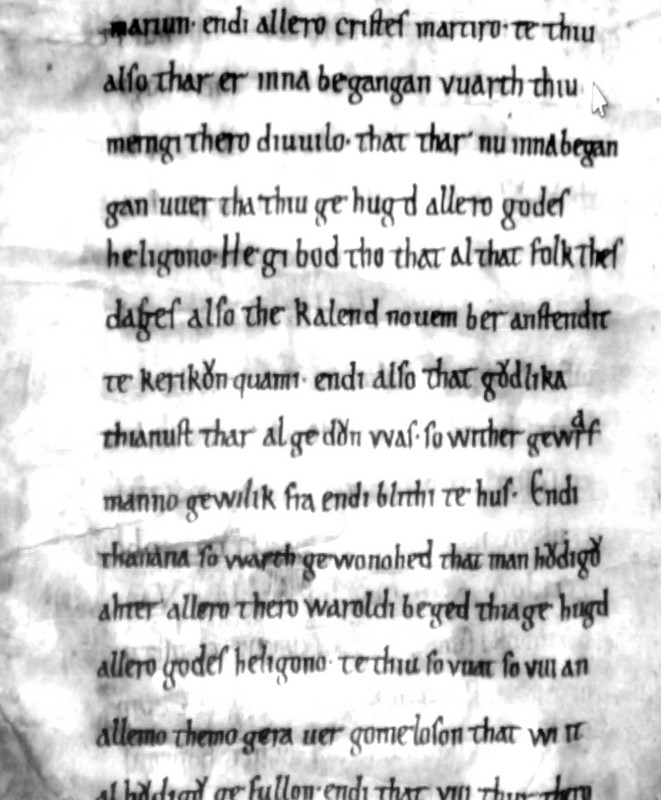 mariun· endi allero criſteſ martiro· te thiu
alſo thar er inna begangan vuarth thiu
mengi thero diuuilo· that thar nu inna began
gan uuer tha thiu ge hugd allero godeſ
heligono· He gi bod tho that al that folk theſ
dageſ alſo the kalend nouem ber anſtendit
te kerikoͮn quami· endi alſo that goͮdlika
thianuſt thar al ge doͮn vvaſ· ſo wither gewͣrf
manno gewilik fra endi blithi te huſ· Endi
thanana ſo warth gewonohed that man hoͮdigoͮ
ahter allero thero waroldi beged thia ge hugd
allero godeſ heligono· te thiu ſo vuat ſo vui an
allemo themo gera uer gomeloſon that wi it
al hoͮdigoͮ ge fullon· endi that vui thur thero